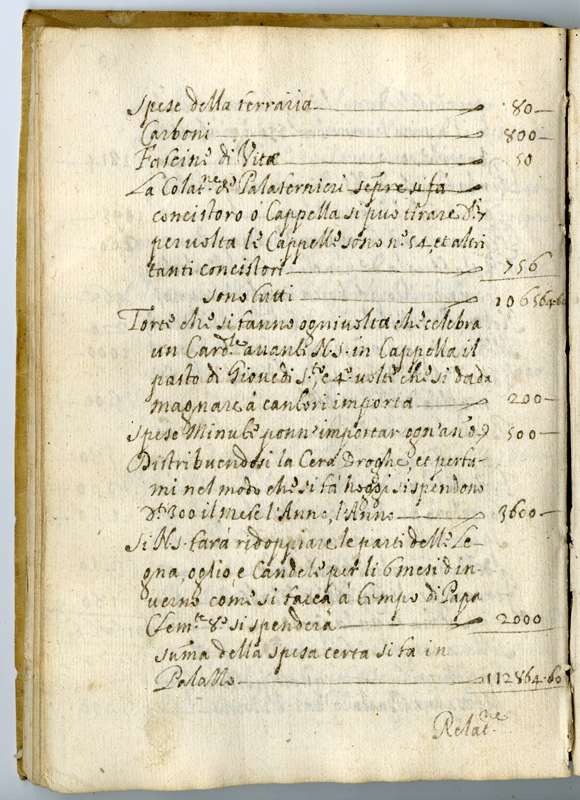 Spese della ferraria 80
Carboni 800
Fascine di Vite 50
La Colat.ne de Palafernieri sẽpre si fa
concistoro ò Cappella si può tirare d.ti 7
per volta le Cappelle sono n.º 54, et altri
tanti concistori 756
sono tutti 106564.60
Torte che si fanno ogni volta che celebra
un Card.le avanti N.S. in Cappella il
pasto di Giovedi S.to, e 4.º volte che si dà da
magnare à cantori importa 200
Spese Minute ponn' importar ogn'an'
500
Distribuendosi la Cera Droghe, et perfu-
mi nel modo che si fa hoggi si spendono
d.ti 300 il mese l'Anno, l'Anno 3600
Si N.S. farà ridoppiare le parti delle Le-
gna, oglio, e Candele per li 6 mesi d'in-
verno come si facea à tempo di Papa
Clem.te 8.º si spenderà 2000
suma della spesa certa si fa in
Palazzo 112864.60
Relat.ne